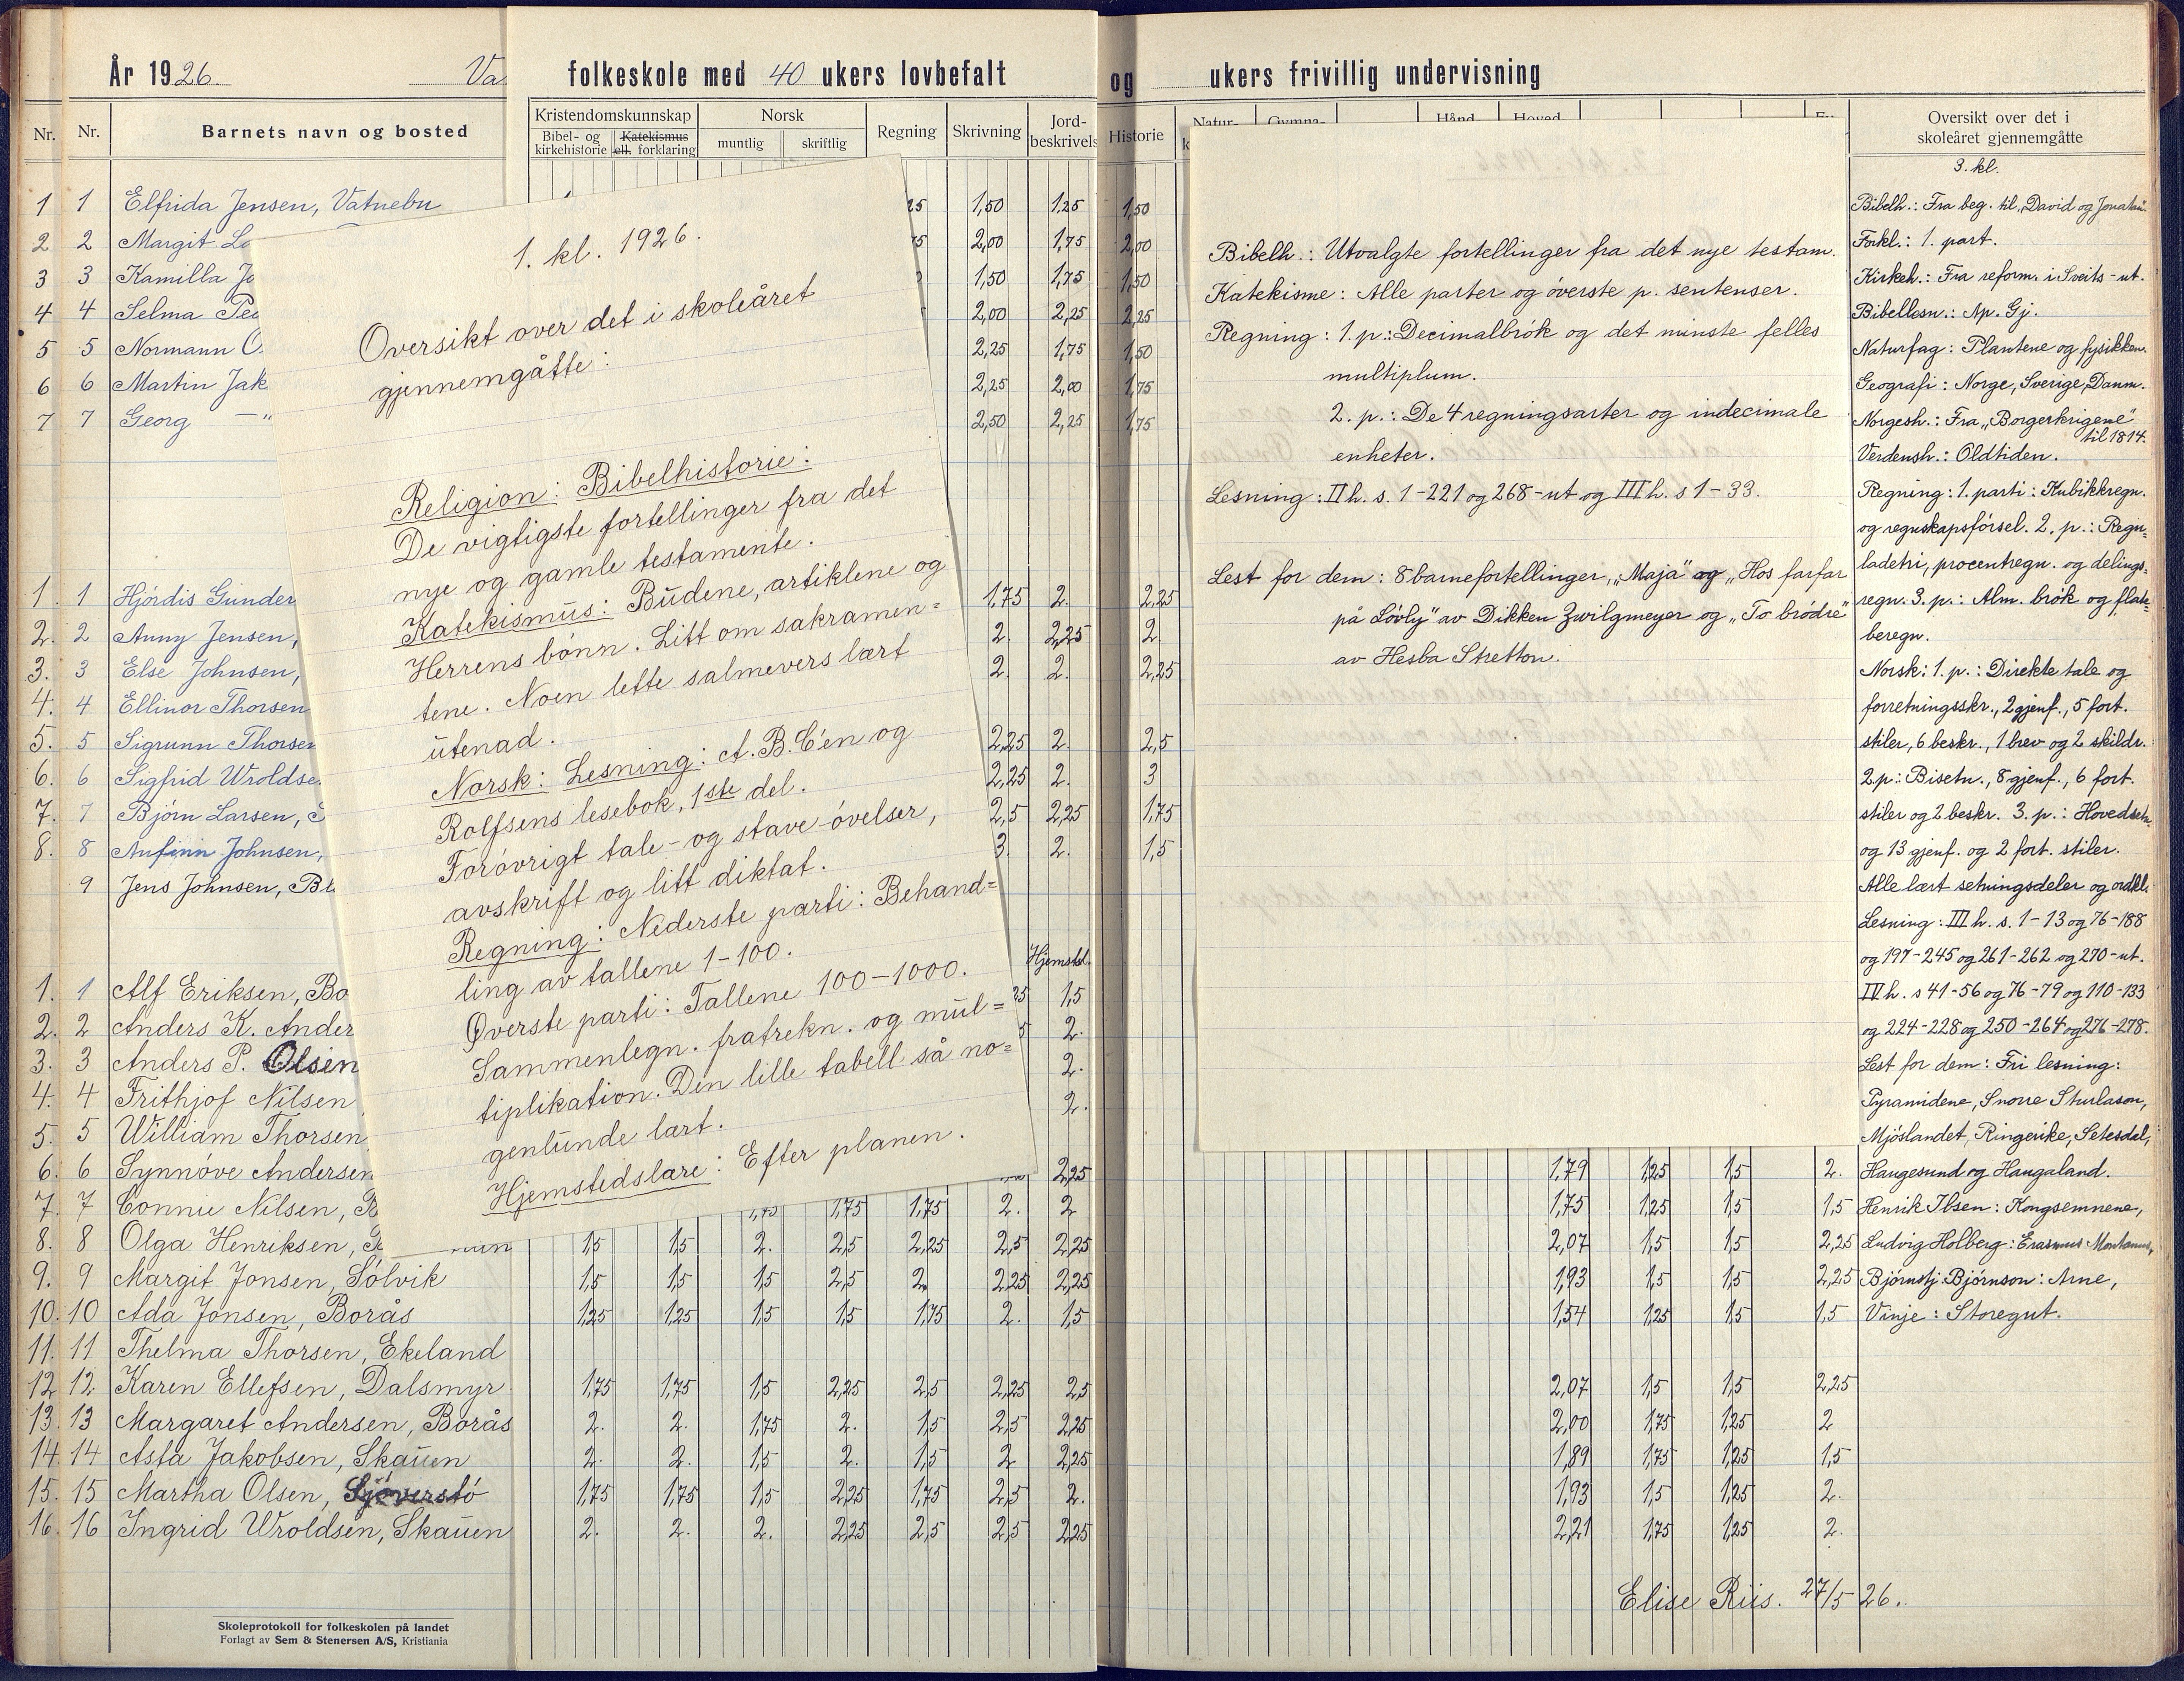 År 1926. Va
Nr. Nr. Barnets navn og bosted
1 1 Elfrida Jensen, Vatnebu
2 2 Margit
3 3 Kamilla
4 4 Selma
5 5 Normann
6 6 Martin Jak
7 7 Georg —"
1. 1 Hjördis Gunder
2. 2 Anny Jensen,
3. 3 Else Johnsen,
4. 4 Ellinor Thorsen
5. 5 Sigrunn Thorsen
6. 6 Sigfrid Wroldse
7. 7 Björn Larsen,
8. 8 Anfinn Johnsen,
9 Jens Johnsen,
1. 1 Alf Eriksen, Bo
2. 2 Anders K. Ander
3. 3 Anders P. Olsen
4. 4 Frithjof Nilsen
5. 5 William Thorsen
6. 6 Synnöve Andersen
7. 7 Connie Nilsen,
8. 8 Olga Henriksen,
9. 9 Margit Jonsen, Sölvik
10. 10 Ada Jonsen, Borås
11. 11 Thelma Thorsen, Ekeland
12. 12 Karen Ellefsen, Dalsmyr
13. 13 Margaret Andersen, Borås
14. 14 Asta Jakobsen, Skauen
15. 15 Martha Olsen, Sjöverstö
16. 16 Ingrid Wroldsen, Skauen
Skoleprotokoll for folkeskolen på landet
Forlagt av Sem & Stenersen A/S, Kristiania
folkeskole med 40 ukers lovbefalt
Kristendomskunnskap Norsk Regning Skrivning Jord-
beskrivels
Bibel- og
kirkehistorie
Katekismus
ell. forklaring
muntlig skriftlig
1. kl. 1926.
Oversikt over det i skoleåret
gjennemgåtte:
Religion: Bibelhistorie:
De vigtigste fortellinger fra det
nye og gamle testamente.
Katekismus: Budene, artiklene og
Herrens bönn. Litt om sakramen=
tene. Noen lette salmevers lært
utenad.
Norsk: Lesning: A.B.C'en og
Rolfsens lesebok, 1ste del.
Forövrigt tale- og stave-övelser,
avskrift og litt diktat.
Regning: Nederste parti: Behand=
ling av tallene 1-100.
Øverste parti: Tallene 100-1000.
Sammenlegn. fratrekn. og mul=
tiplikation. Den lille tabell så no=
genlunde lært.
Hjemstedslære: Efter planen.
1,50 1,25
2,00 1,75
1,50 1,75
2,00 2,25
2,25 1,75
2,25 2,00
2,50 2,25
1,75 2.
2. 2,25
2. 2.
2,25 2.
2,25 2.
2,5 2,25
3. 2.
Hjemstd.
1,5
2.
2.
2.
2,25
1,75 1,75 1,75 2. 2
1,5 1,5 2. 2,5 2,25 2,5 2,25
1,5 1,5 1,5 2,5 2. 2,25 2,25
1,25 1,25 1,5 1,5 1,75 2. 1,5
1,75 1,75 1,5 2,25 2,5 2,25 2,5
2. 2. 1,75 2. 1,5 2,5 2,25
2. 2. 1,5 2. 1,5 2 2,25
1,75 1,75 1,5 2,25 1,75 2,5 2.
2. 2. 2. 2,25 2,5 2,5 2,25
og ukers frivillig undervisning
Historie
1,50
2,00
1,50
2,25
1,50
1,75
1,75
2,25
2.
2,25
2,5
3
1,75
1,5
Bibelh.: Utvalgte fortellinger fra det nye testam.
Katekisme: Alle parter og överste p. sentenser.
Regning: 1. p.: Decimalbrök og det minste felles
multiplum.
2. p.: De 4 regningsarter og indecimale
enheter.
Lesning: II h. s. 1-221 og 268-ut og III h. s 1-33.
Lest for dem: 8 barnefortellinger, „Maja" og „Hos farfar
på Lövly" av Dikken Zwilgmeyer og „To brödre"
av Hesba Stretton.
1,79 1,25 1,5 2.
1,75 1,25 1,5 1,5
2,07 1,5 1,5 2,25
1,93 1,5 1,5 2,25
1,54 1,25 1,5 1,5
2,07 1,5 1,5 2,25
2,00 1,75 1,25 2
1,89 1,75 1,25 1,5
1,93 1,5 1,25 2.
2,21 1,75 1,25 2.
Elise Riis. 27/5 26.
Oversikt over det i
skoleåret gjennemgåtte
3. kl.
Bibelh.: Fra beg. til „David og Jonatan"
Forkl.: 1. part.
Kirkeh.: Fra reform. i Sveits - ut.
Bibellesn.: Ap. Gj.
Naturfag: Plantene og fysikken.
Geografi: Norge, Sverige, Danm.
Norgesh.: Fra „Borgerkrigene"
til 1814.
Verdensh.: Oldtiden.
Regning: 1. parti: Kubikkregn.
og regnskapsförsel. 2. p.: Regu=
ladetri, procentregn. og delings=
regn. 3. p.: Alm. brök og flate=
beregn.
Norsk: 1. p.: Direkte tale og
forretningsskr., 2 gjenf., 5 fort.
stiler, 6 beskr., 1 brev og 2 skildr.
2 p: Bisetn., 8 gjenf., 6 fort.
stiler og 2 beskr. 3. p.: Hovedsetn.
og 13 gjenf. og 2 fort. stiler.
Alle lært setningsdeler og ordkl.
Lesning: III h. s. 1-13 og 76-188
og 197-245 og 261-262 og 270-ut.
IV h. s 41-56 og 76-79 og 110-133
og 224-228 og 250-264 og 276-278.
Lest for dem: Fri lesning:
Pyramidene, Snorre Sturlason,
Mjöslandet, Ringerike, Setesdal,
Haugesund og Haugaland.
Henrik Ibsen: Kongsemnene,
Ludvig Holberg: Erasmus Montanus,
Björnstj. Björnson: Arne,
Vinje: Storegut.